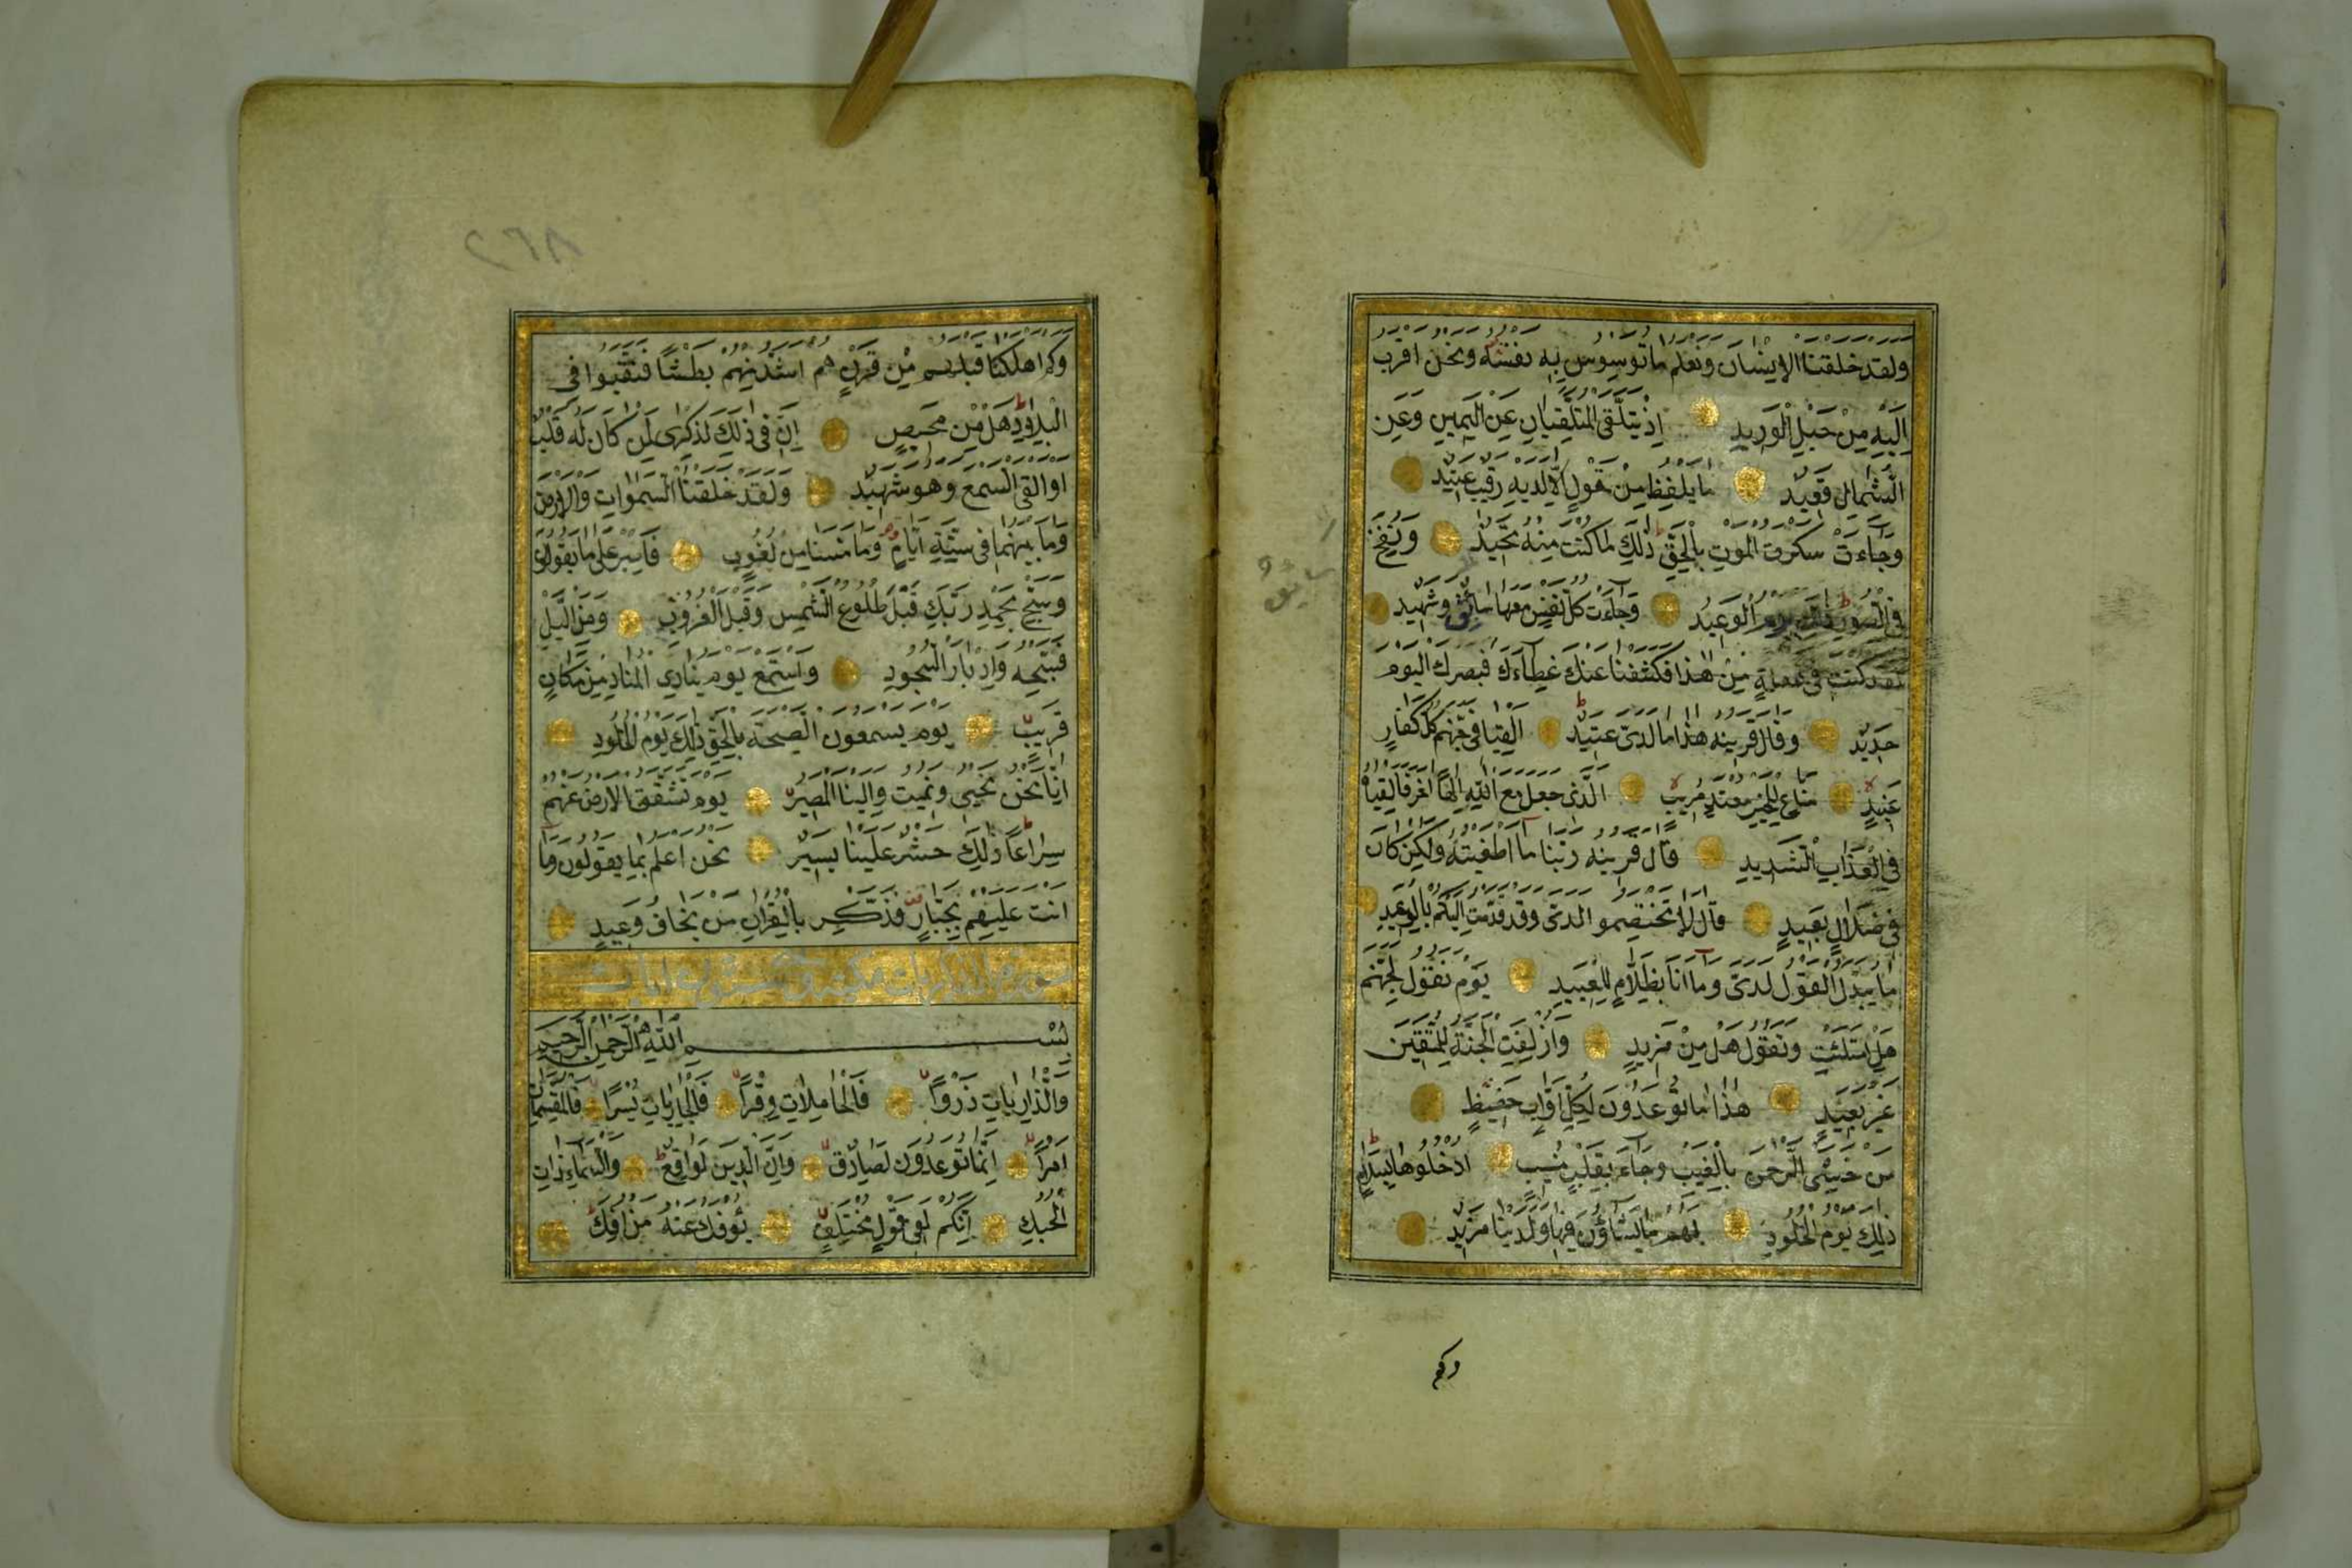 ولقد خلقنا الانسان ونعلم ما توسوس به نفسه ونحن اقرب
اليه من حبل الوريد اذ يتلقى المتلقيان عن اليمين وعن
الشمال قعيد ما يلفظ من قول الا لديه رقيب عتيد
وجاءت سكرة الموت بالحق ذلك ما كنت منه تحيد ونفخ
في الصور ذلك يوم الوعيد وجاءت كل نفس معها سائق وشهيد
لقد كنت في غفلة من هذا فكشفنا عنك غطاءك فبصرك اليوم
حديد وقال قرينه هذا ما لدي عتيد القيا في جهنم كل كفار
عنيد مناع للخير معتد مريب الذي جعل مع الله الها اخر فالقياه
في العذاب الشديد قال قرينه ربنا ما اطغيته ولكن كان
في ضلال بعيد قال لا تختصموا لدي وقد قدمت اليكم بالوعيد
ما يبدل القول لدي وما انا بظلام للعبيد يوم نقول لجهنم
هل امتلئت وتقول هل من مزيد وازلفت الجنة للمتقين
غير بعيد هذا ما توعدون لكل اواب حفيظ
من خشي الرحمن بالغيب وجاء بقلب منيب ادخلوها بسلام
ذلك يوم الخلود لهم ما يشاؤن فيها ولدينا مزيد
وكم
سائق
٢٦٨
وكم اهلكنا قبلهم من قرن هم اشد منهم بطشا فنقبوا في
البلاد هل من محيص ان في ذلك لذكرى لمن كان له قلب
او القى السمع وهو شهيد ولقد خلقنا السموات والارض
وما بينهما في ستة ايام وما مسنا من لغوب فاصبر على ما يقولون
وسبح بحمد ربك قبل طلوع الشمس وقبل الغروب ومن الليل
فسبحه وادبار السجود واستمع يوم يناد المناد من مكان
قريب يوم يسمعون الصيحة بالحق ذلك يوم الخلود
انا نحن نحيي ونميت والينا المصير يوم تشقق الارض عنهم
سراعا ذلك حشر علينا يسير نحن اعلم بما يقولون وما
انت عليهم بجبار فذكر بالقران من يخاف وعيد
سورة الذاريات مكية وهي ستون ايات
بسم الله الرحمن الرحيم
والذاريات ذروا فالحاملات وقرا فالجاريات يسرا فالمقسمات
امرا انما توعدون لصادق وان الدين لواقع والسماء ذات
الحبك انكم لفي قول مختلف يؤفك عنه من افك